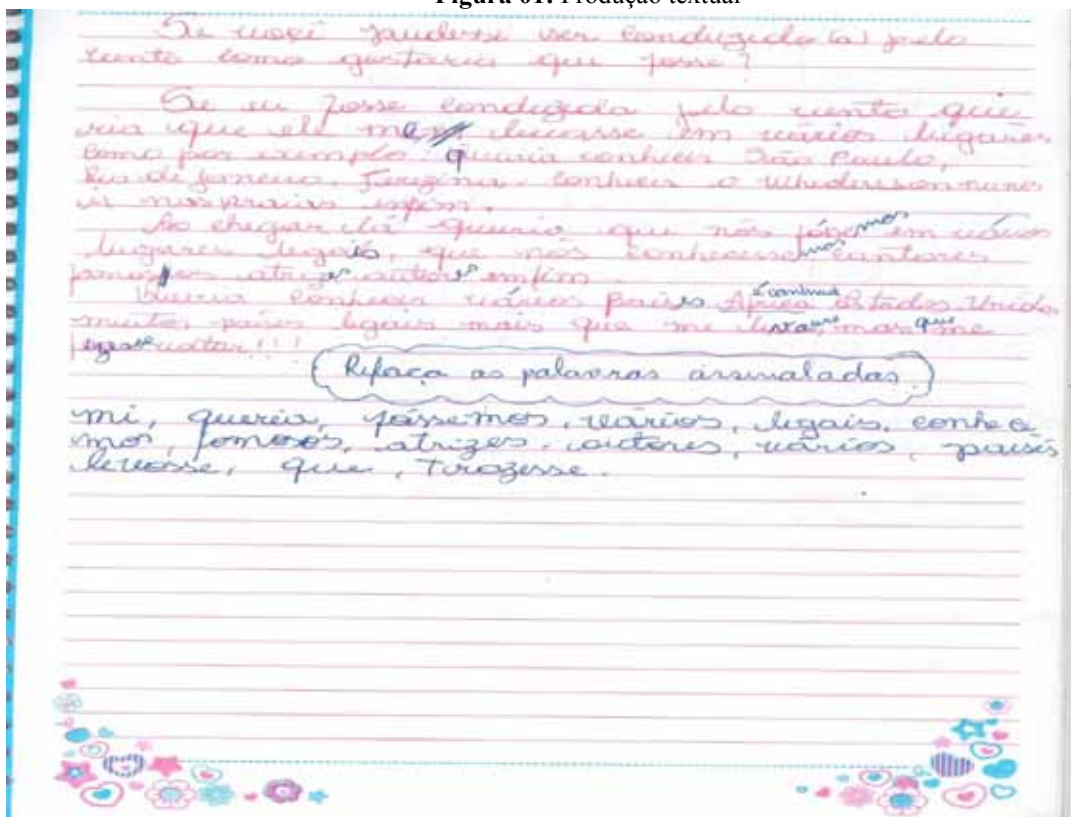 Figura 01. Produção textual
Se você pudesse ser conduzido(a) pelo
vento como gostaria que fosse?
Se eu fosse conduzida pelo vento que
ria que ele me levasse em vários lugares
como por exemplo queria conhecer São Paulo,
Rio de Janeiro, Terezina. conhecer o Whindersson nunes
ir nas praias enfim.
Ao chegar lá queria que nós fôssemos em vários
lugares legais, que nós conhecessemos cantores
famosos atrizes autores enfim.
Queria conhecer vários países África é continente Estados Unidos
muitos países legais mais que me levasse mas que me
voltar!!!
Refaça as palavras assinaladas
mi, queria, fossemos, vários, legais, conhece
mos, famosos, atrizes, autores, vários, países
levasse, que, Trazesse.